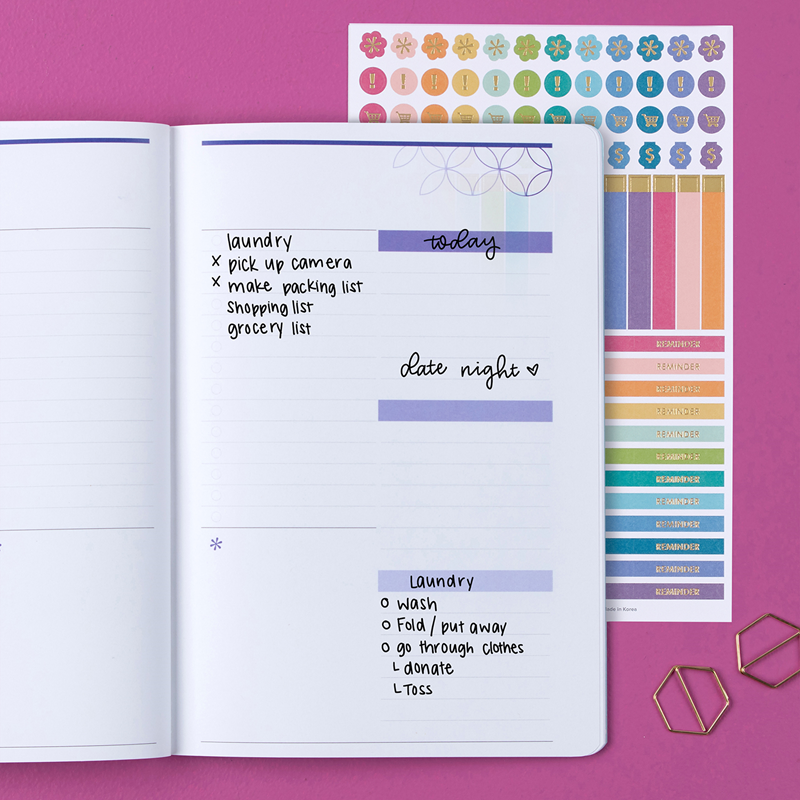 laundry
x pick up camera
x make packing list
shopping list
grocery list
*
today
date night ♡
Laundry
o wash
o Fold / put away
o go through clothes
└ donate
└ Toss
! ! ! ! ! ! ! ! ! ! ! !
$ $ $ $
REMINDER
REMINDER
REMINDER
REMINDER
REMINDER
REMINDER
REMINDER
REMINDER
REMINDER
REMINDER
REMINDER
REMINDER
in Korea